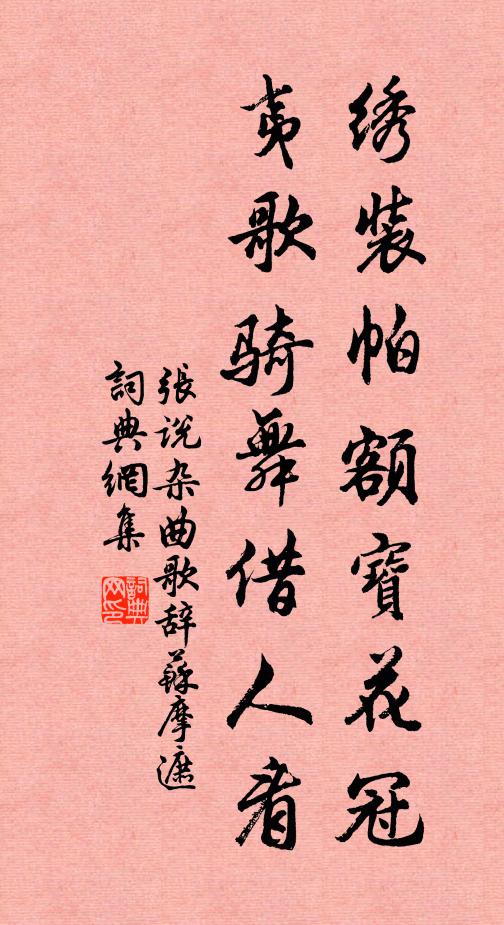 绣装帕额寳花冠
夷歌骑舞借人看
張说杂曲歌辞蘇摩遮
詞典網集
詞典网印